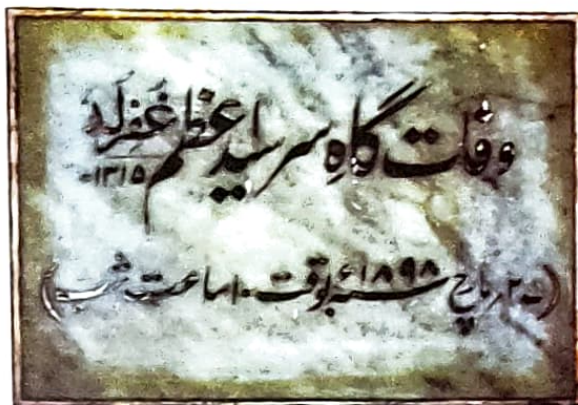 وفات گاہِ سر سید اعظم غفر لہ
۱۳۱۵
مارچ ۱۸۹۸ء بوقت ۱۰ ساعت شب)